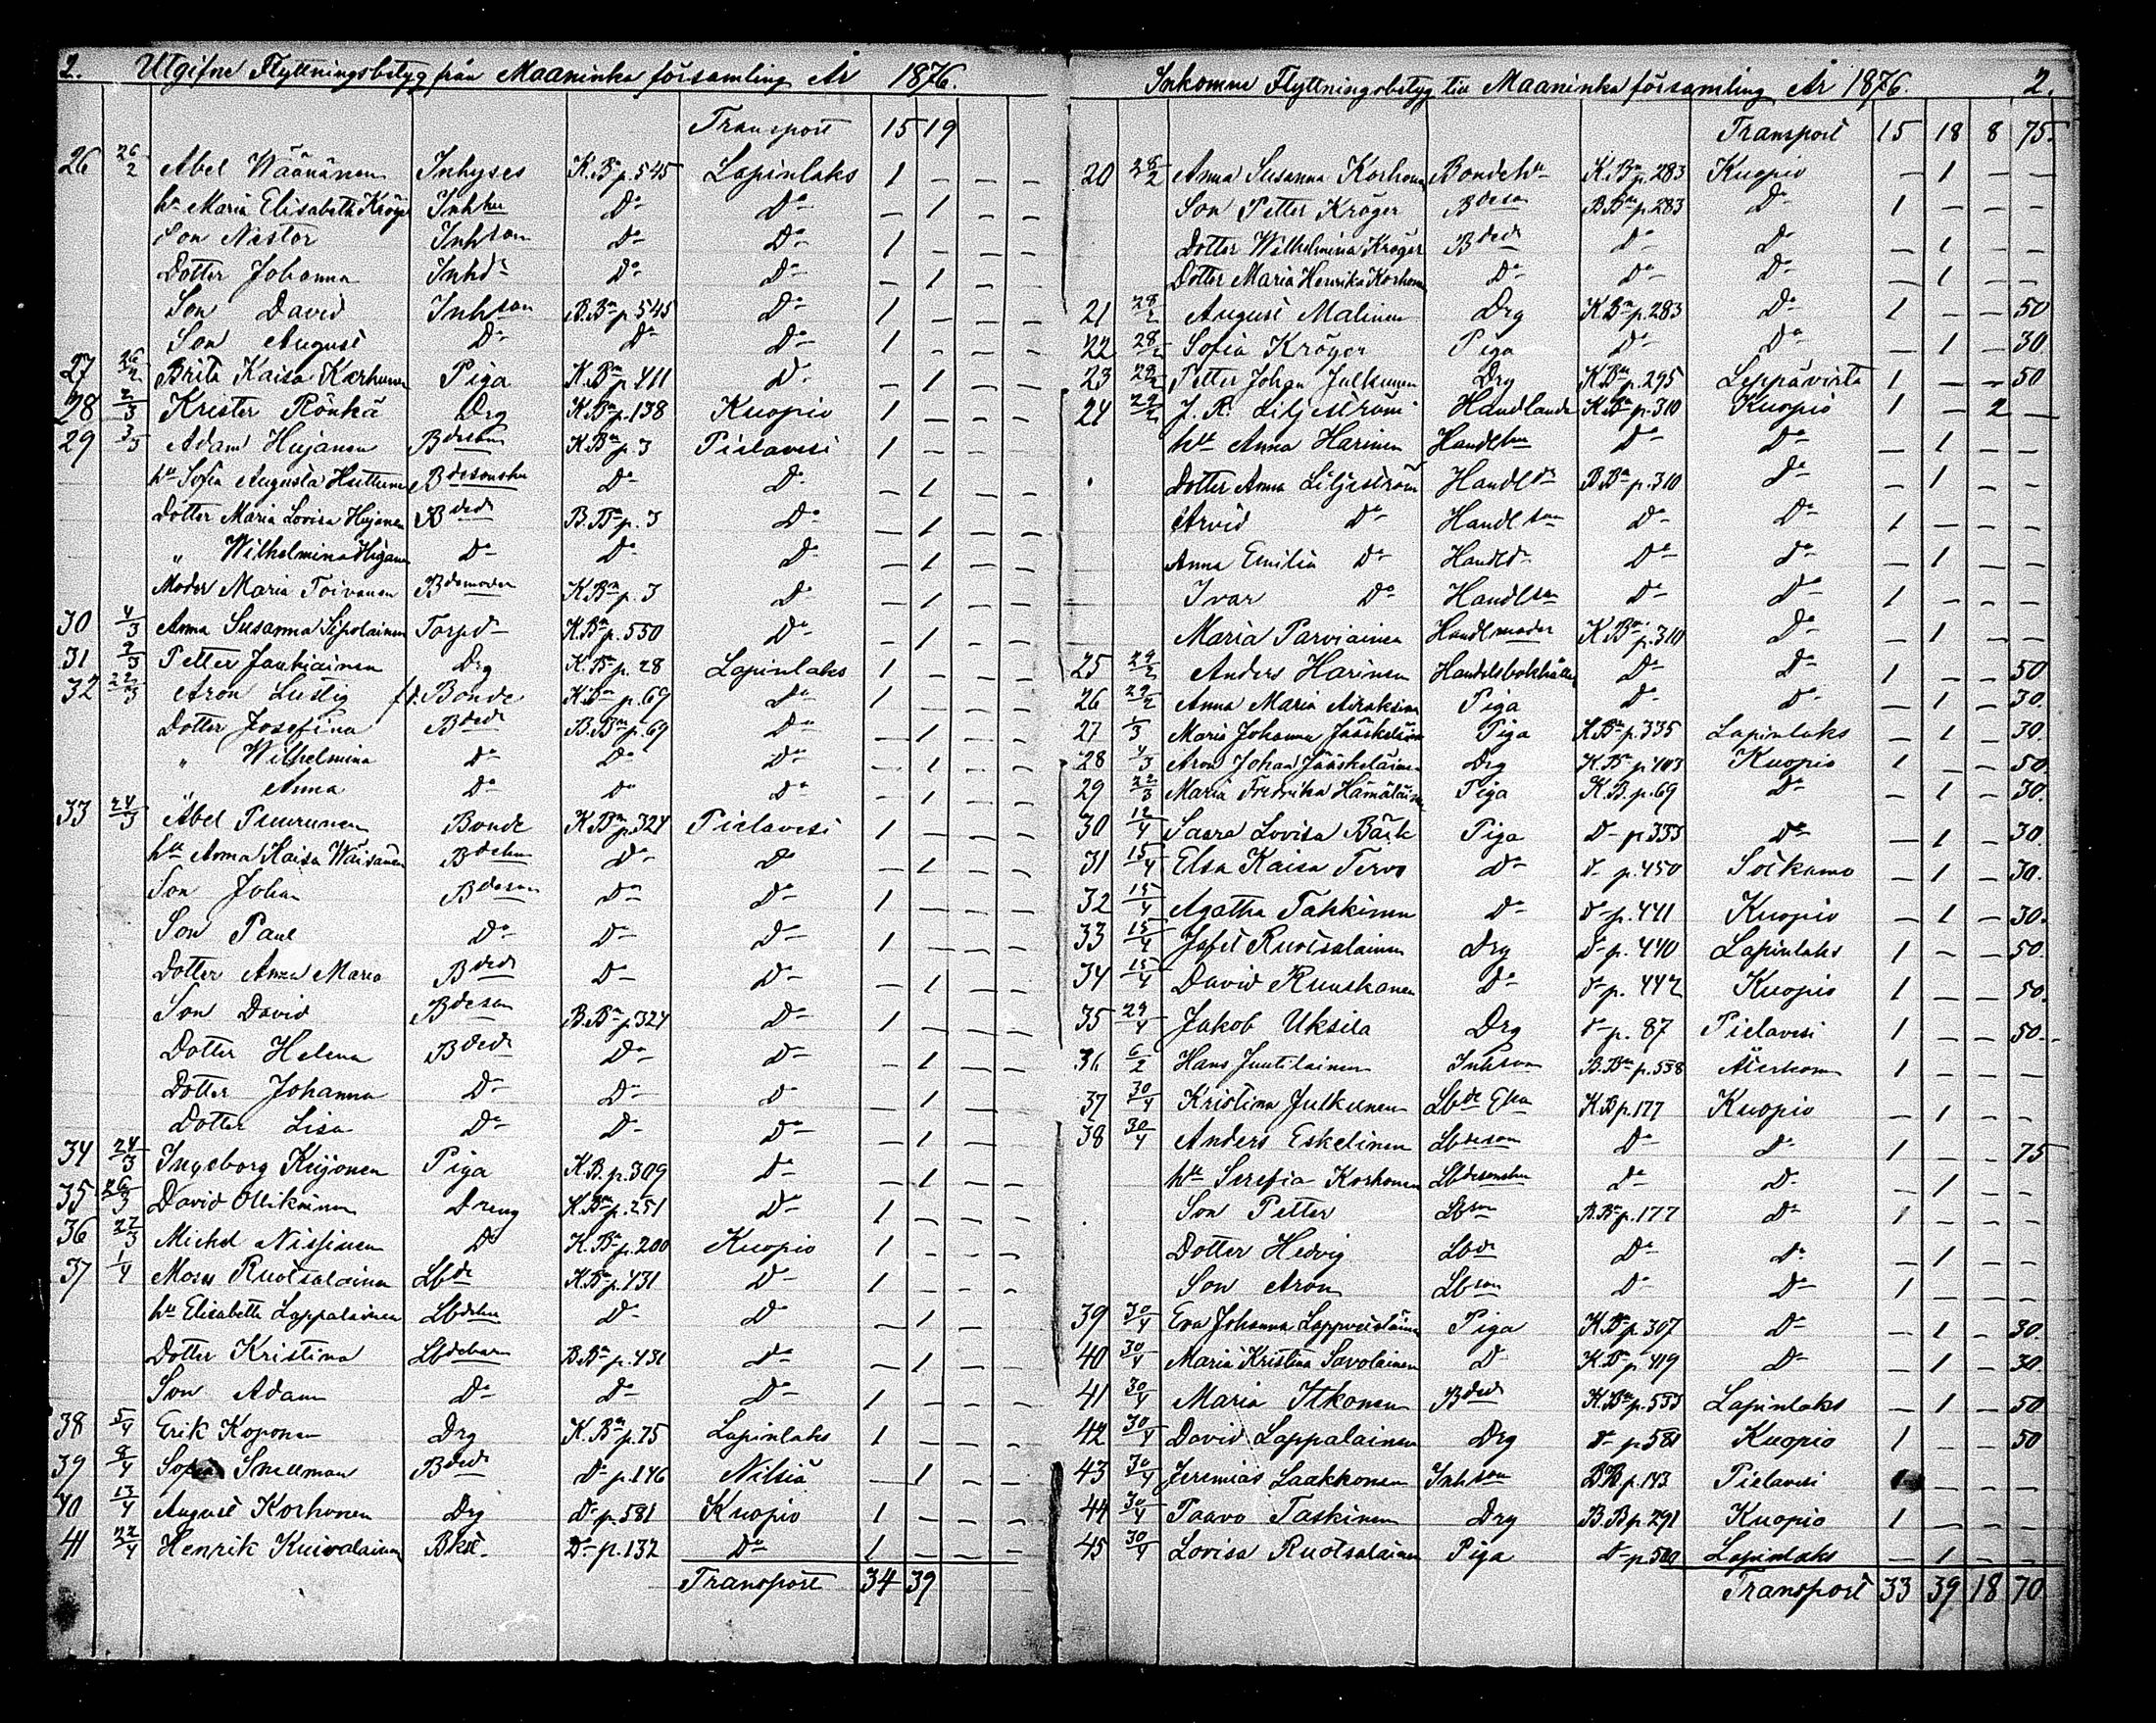 2. Utgifne Flyttningsbetyg från Maaninka församling År 1876.
Transport 15 19
26 26/2 Abel Wäänänen Inhyses K.Bn p.545 Lapinlaks 1 – – –
hu Maria Elisabeth Kröger Inhhu Do Do – 1 – –
Son Nestor Inhson Do Do 1 – – –
Dotter Johanna Inhdr Do Do – 1 – –
Son David Inhson B.Bn p.545 Do 1 – – –
Son August Do Do Do 1 – – –
27 26/2 Brita Kaisa Karhunen Piga K.Bn p.411 Do – 1 – –
28 2/3 Krister Rönkä Drg K.Bn p.138 Kuopio 1 – – –
29 3/3 Adam Hujanen Bdeson K.Bn p.3 Pielavesi 1 – – –
hu Sofia Augusta Huttunen Bdesonshu Do Do – 1 – –
Dotter Maria Lovisa Hujanen Bdedr B.Bn p.3 Do – 1 – –
" Wilhelmina Hujanen Do Do Do – 1 – –
Moder Maria Toivanen Bdemoder K.Bn p.3 Do – 1 – –
30 4/3 Anna Susanna Sipolainen Torpdr K.Bn p.550 Do – 1 – –
31 7/3 Petter Jauhiainen Drg K.Bn p.28 Lapinlaks 1 – – –
32 22/3 Aron Lustig f.d. Bonde K.Bn p.69 Do 1 – – –
Dotter Josefina Bdedr B.Bn p.69 Do – 1 – –
" Wilhelmina Do Do Do – 1 – –
" Anna Do Do Do – 1 – –
33 24/3 Abel Puurunen Bonde K.Bn p.324 Pielavesi 1 – – –
hu Anna Kaisa Wäisänen Bdehu Do Do – 1 – –
Son Johan Bdeson Do Do 1 – – –
Son Paul Do Do Do 1 – – –
Dotter Anna Maria Bdedr Do Do – 1 – –
Son David Bdeson B.Bn p.324 Do 1 – – –
Dotter Helena Bdedr Do Do – 1 – –
Dotter Johanna Do Do Do – 1 – –
Dotter Lisa Do Do Do – 1 – –
34 24/3 Ingeborg Kujonen Piga K.B. p.309 Do – 1 – –
35 26/3 David Ollikainen Dreng K.Bn p.251 Do 1 – – –
36 27/3 Michel Nissinen Do K.Bn p.200 Kuopio 1 – – –
37 1/4 Moses Ruotsalainen Lbde K.Bn p.431 Do 1 – – –
hu Elisabeth Lappalainen Lbdehu Do Do – 1 – –
Dotter Kristina Lbdebarn B.Bn p.431 Do – 1 – –
Son Adam Do Do Do 1 – – –
38 5/4 Erik Koponen Drg K.Bn p.75 Lapinlaks 1 – – –
39 8/4 Sofia Snellman Bdedr Do p.146 Nilsiä – 1 – –
40 13/4 August Korhonen Drg Do p.581 Kuopio 1 – – –
41 22/4 Henrik Kuivalainen Bkst. Do p.132 Do 1 – – –
Transport 34 39
Inkomne Flyttningsbetyg till Maaninka församling År 1876. 2.
Transport 15 18 8 75.
20 28/2 Anna Susanna Korhonen Bondehu K.Bn p.283 Kuopio – 1 – –
Son Petter Kröger Bdeson B.Bn p.283 Do 1 – – –
Dotter Wilhelmina Kröger Bdedr Do Do – 1 – –
Dotter Maria Henrika Korhonen Do Do Do – 1 – –
21 28/2 August Malinen Drg K.Bn p.283 Do 1 – – 50
22 28/2 Sofia Kröger Piga Do Do – 1 – 30.
23 28/2 Petter Johan Julkunen Drg K.Bn p.295 Leppävirta 1 – – 50
24 29/2 J. R. Liljeström Handlande K.Bn p.310 Kuopio 1 – 2 –
hu Anna Harinen Handlhu Do Do – 1 – –
Dotter Anna Liljeström Handldr B.Bn p.310 Do – 1 – –
Arvid Do Handlson Do Do 1 – – –
Anna Emilia Do Handldr Do Do – 1 – –
Ivar Do Handlson Do Do 1 – – –
Maria Parviainen Handlmoder K.Bn p.310 Do – 1 – –
25 29/2 Anders Harinen Handelsbokhållare Do Do 1 – – 50
26 29/2 Anna Maria Airaksinen Piga Do Do – 1 – 30.
27 1/3 Maria Johanna Jääskeläinen Piga K.Bn p.335 Lapinlaks – 1 – 30.
28 4/3 Aron Johan Jääskeläinen Drg K.Bn p.403 Kuopio 1 – – 50.
29 22/3 Maria Fredrika Hämäläinen Piga K.B. p.69 Do – 1 – 30.
30 12/4 Saara Lovisa Bäck Piga Do p.333 Do – 1 – 30.
31 15/4 Elsa Kaisa Tervo Do Do p.450 Sotkamo – 1 – 30.
32 15/4 Agatha Tahkinen Do Do p.441 Kuopio – 1 – 30.
33 15/4 Jafet Ruotsalainen Drg Do p.440 Lapinlaks 1 – – 50.
34 15/4 David Ruuskanen Do Do p.442 Kuopio 1 – – 50.
35 29/4 Jakob Uksila Drg Do p.87 Pielavesi 1 – – 50.
36 6/2 Hans Juutilainen Inhson B.Bn p.558 Återkom 1 – – –
37 30/4 Kristina Julkunen Lbde Eka K.B p.177 Kuopio – 1 – –
38 30/4 Anders Eskelinen Lbdeson Do Do 1 – – 75
hu Serefia Korhonen Lbdesonshu Do Do – 1 – –
Son Petter Lbson B.Bn p.177 Do 1 – – –
Dotter Hedvig Lbdr Do Do – 1 – –
Son Aron Lbson Do Do 1 – – –
39 30/4 Eva Johanna Lappveteläinen Piga K.Bn p.307 Do – 1 – 30.
40 30/4 Maria Kristina Savolainen Do K.Bn p.419 Do – 1 – 30
41 30/4 Maria Itkonen Bdedr K.Bn p.533 Lapinlaks – 1 – 50
42 30/4 David Lappalainen Drg Do p.581 Kuopio 1 – – 50
43 30/4 Jeremias Laakkonen Inhson B.B. p.143 Pielavesi 1 – – –
44 30/4 Paavo Taskinen Drg B.B p.291 Kuopio 1 – – –
45 30/4 Lovisa Ruotsalainen Piga Do Lapinlaks – 1 – –
Transport 33 39 18 70.